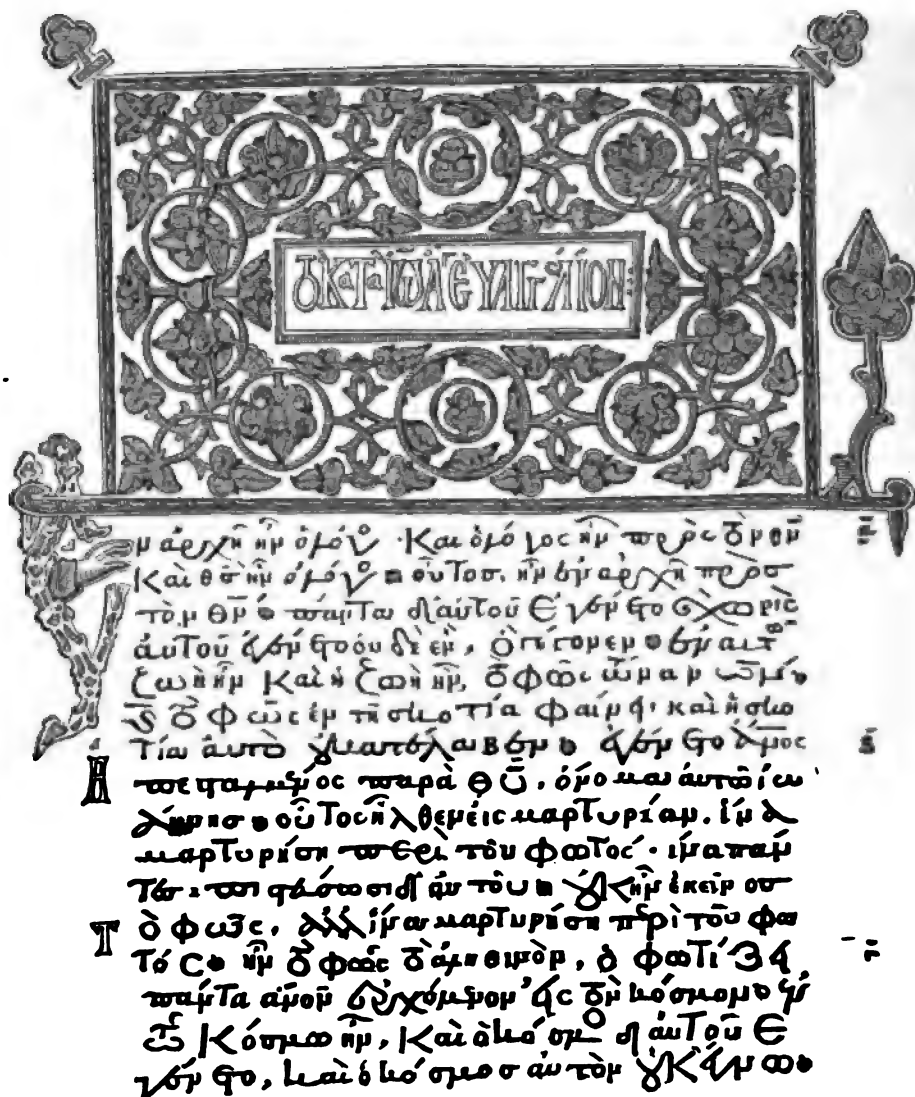 τὸ κατὰ ἰω ἁ ευαγγέλιον:
Ἐν ἀρχῆ ἦν ὁ λόγος. Καὶ ὁ λόγος ἦν πρὸς τὸν θν
Καὶ θς ἦν ὁ λόγος οὗτος. ἦν ἐν ἀρχῆ πρὸς
τὸν θν πάντα δι αὐτοῦ ἐγένετο χωρὶς
αὐτοῦ ἐγένετο οὐδὲ ἐν, ὃ γέγονεν ἐν αὐτῶ
ζωὴ ἦν Καὶ ἡ ζωὴ ἦν, τὸ φῶς τῶν ανων
Καὶ τὸ φῶς ἐν τῆ σκοτία φαίνει. καὶ ἡ σκο
τία αὐτὸ οὐ κατέλαβεν ἐγένετο ανος
ἀπεσταλμένος παρὰ θυ, ὄνομα αὐτῶ ἰω
άννησ οὗτος ἦλθεν εἰς μαρτυρίαν. ἵνα
μαρτυρήση περὶ τοῦ φωτός. ἵνα πάν
τες πιστεύσωσι δι αὐτοῦ οὐκ ἦν ἐκεῖνοσ
τὸ φῶς, ἀλλ ἵνα μαρτυρήση περὶ τοῦ φω
τός ἦν τὸ φῶς τὸ ἀληθινὸν, ὃ φωτίζει
πάντα ανον ἐρχόμενον εἰς τὸν κόσμον ἐν
τῶ Κόσμω ἦν, Καὶ ὁ κόσμος δι αὐτοῦ Ἐ
γένετο, καὶ ὁ κόσμοσ αὐτὸν οὐκ ἔγνω